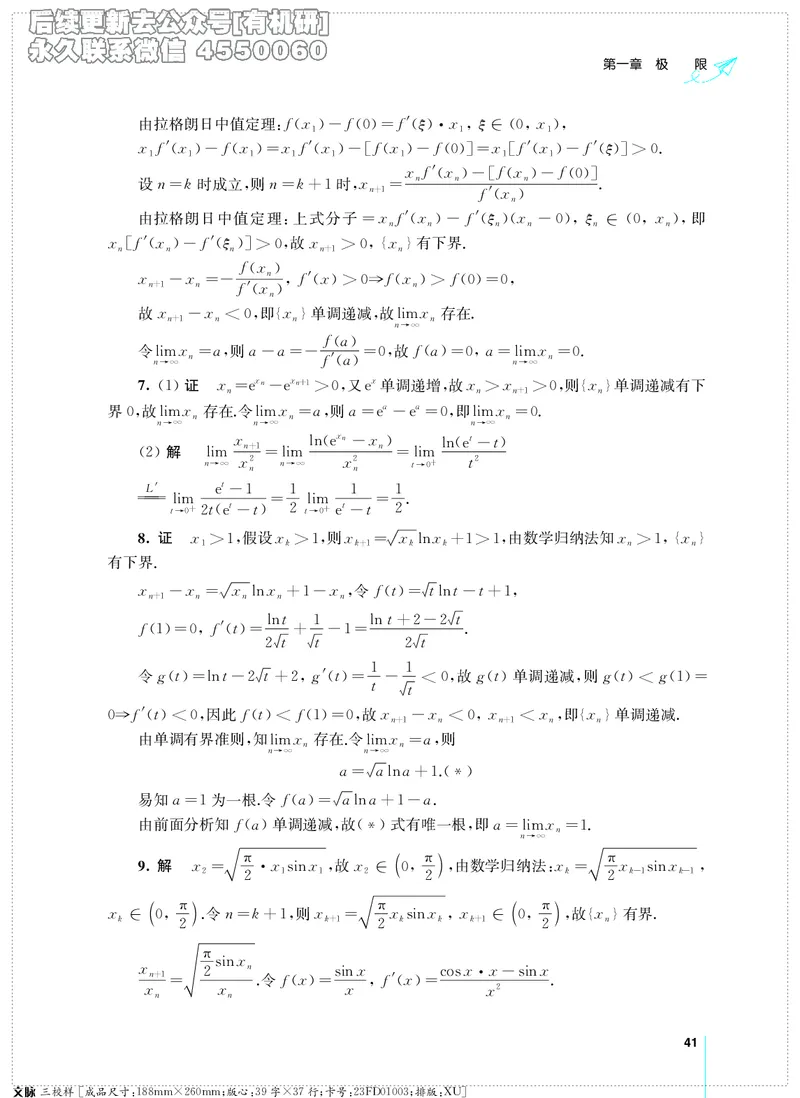 后续更新去公众号[有机研]
永久联系微信 4550060
第一章 极 限
由拉格朗日中值定理:f(x₁)-f(0)=f′(ξ)·x₁, ξ∈(0, x₁),
x₁f′(x₁)-f(x₁)=x₁f′(x₁)-[f(x₁)-f(0)]=x₁[f′(x₁)-f′(ξ)]>0.
设 n=k 时成立,则 n=k+1 时,xₙ₊₁=(xₙf′(xₙ)-[f(xₙ)-f(0)])/f′(xₙ).
由拉格朗日中值定理:上式分子=xₙf′(xₙ)-f′(ξₙ)(xₙ-0), ξₙ∈(0, xₙ),即
xₙ[f′(xₙ)-f′(ξₙ)]>0,故 xₙ₊₁>0, {xₙ}有下界.
xₙ₊₁-xₙ=-f(xₙ)/f′(xₙ), f′(x)>0⇒f(xₙ)>f(0)=0,
故 xₙ₊₁-xₙ<0,即{xₙ}单调递减,故 lim_{n→∞} xₙ 存在.
令 lim_{n→∞} xₙ=a,则 a-a=-f(a)/f′(a)=0,故 f(a)=0, a=lim_{n→∞} xₙ=0.
7. (1) 证 xₙ=e^{xₙ}-e^{xₙ₊₁}>0,又 eˣ 单调递增,故 xₙ>xₙ₊₁>0,则{xₙ}单调递减有下
界 0,故 lim_{n→∞} xₙ 存在.令 lim_{n→∞} xₙ=a,则 a=eᵃ-eᵃ=0,即 lim_{n→∞} xₙ=0.
(2) 解 lim_{n→∞} xₙ₊₁/xₙ²=lim_{n→∞} ln(e^{xₙ}-xₙ)/xₙ²=lim_{t→0⁺} ln(eᵗ-t)/t²
=^{L′} lim_{t→0⁺} (eᵗ-1)/(2t(eᵗ-t))=1/2 lim_{t→0⁺} 1/(eᵗ-t)=1/2.
8. 证 x₁>1,假设 xₖ>1,则 xₖ₊₁=√xₖ lnxₖ+1>1,由数学归纳法知 xₙ>1, {xₙ}
有下界.
xₙ₊₁-xₙ=√xₙ lnxₙ+1-xₙ,令 f(t)=√t lnt-t+1,
f(1)=0, f′(t)=lnt/(2√t)+1/√t-1=(ln t+2-2√t)/(2√t).
令 g(t)=lnt-2√t+2, g′(t)=1/t-1/√t<0,故 g(t) 单调递减,则 g(t)<g(1)=
0⇒f′(t)<0,因此 f(t)<f(1)=0,故 xₙ₊₁-xₙ<0, xₙ₊₁<xₙ,即{xₙ}单调递减.
由单调有界准则,知 lim_{n→∞} xₙ 存在.令 lim_{n→∞} xₙ=a,则
a=√a lna+1.(*)
易知 a=1 为一根.令 f(a)=√a lna+1-a.
由前面分析知 f(a) 单调递减,故(*)式有唯一根,即 a=lim_{n→∞} xₙ=1.
9. 解 x₂=√(π/2·x₁sinx₁),故 x₂∈(0, π/2),由数学归纳法:xₖ=√(π/2 xₖ₋₁sinxₖ₋₁),
xₖ∈(0, π/2).令 n=k+1,则 xₖ₊₁=√(π/2 xₖsinxₖ), xₖ₊₁∈(0, π/2),故{xₙ}有界.
xₙ₊₁/xₙ=√((π/2 sinxₙ)/xₙ).令 f(x)=sinx/x, f′(x)=(cosx·x-sinx)/x².
41
文脉 三校样 [成品尺寸:188mm×260mm;版心:39字×37行;卡号:23FD01003;排版:XU]